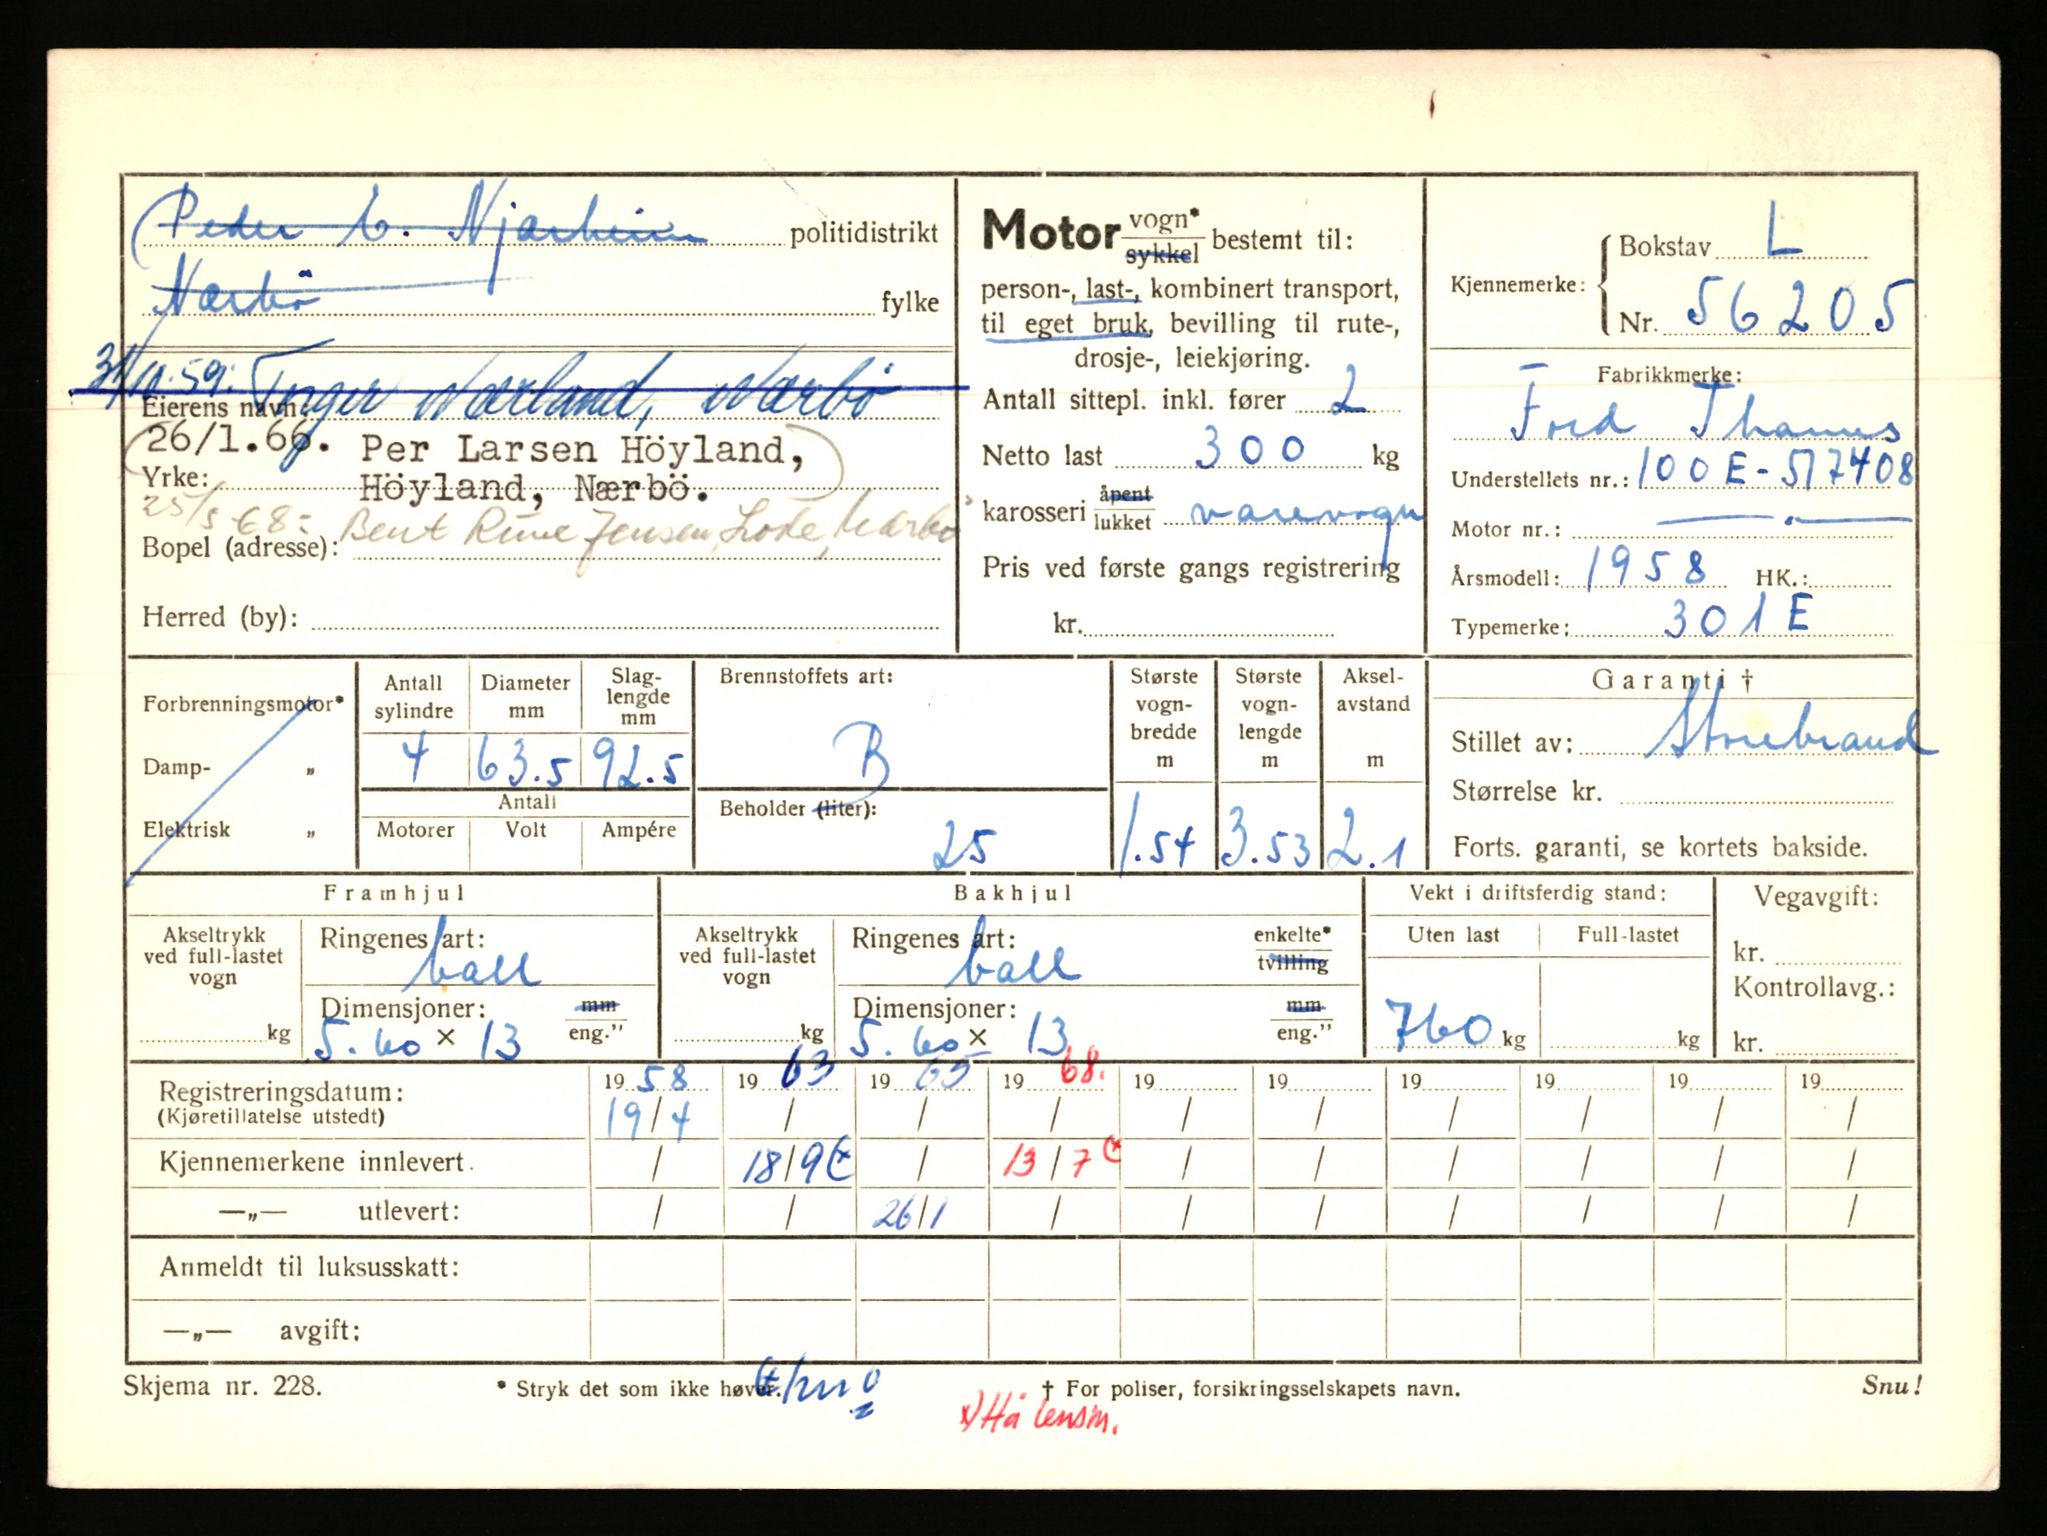 Peder C. Njarheim politidistrikt
Nærbö fylke
31/10.59. Inger Nærland, Nærbö
Eierens navn:
26/1.66. Per Larsen Höyland,
Yrke: Höyland, Nærbö.
25/5-68: Bent Rune Jensen, Lode, Nærbö
Bopel (adresse):
Herred (by):
Motor vogn* sykkel bestemt til:
person-, last-, kombinert transport,
til eget bruk, bevilling til rute-,
drosje-, leiekjøring.
Antall sittepl. inkl. fører 2
Netto last 300 kg
karosseri åpent lukket varevogn
Pris ved første gangs registrering
kr.
Kjennemerke: Bokstav L
Nr. 56205
Fabrikkmerke:
Ford Thames
Understellets nr.: 100E-517408
Motor nr.: —
Årsmodell: 1958 HK.:
Typemerke: 301E
Forbrenningsmotor*
Damp- „
Elektrisk „
Antall sylindre 4
Diameter mm 63.5
Slag-lengde mm 92.5
Antall
Motorer Volt Ampére
Brennstoffets art:
B
Beholder (liter):
25
Største vogn-bredde m 1.54
Største vogn-lengde m 3.53
Aksel-avstand m 2.1
Garanti †
Stillet av: Storebrand
Størrelse kr.
Forts. garanti, se kortets bakside.
Framhjul
Akseltrykk ved full-lastet vogn kg
Ringenes art: ball
Dimensjoner: mm
5.60 × 13 eng.”
Bakhjul
Akseltrykk ved full-lastet vogn kg
Ringenes art: ball enkelte* tvilling
Dimensjoner: mm
5.60 × 13 eng.”
Vekt i driftsferdig stand:
Uten last Full-lastet
760 kg kg
Vegavgift:
kr.
Kontrollavg.:
kr.
Registreringsdatum: 19 58 19 63 19 65 19 68. 19 19 19 19 19 19
(Kjøretillatelse utstedt) 19/4 / / / / / / / / /
Kjennemerkene innlevert. / 18/9 / 13/7 / / / / / /
—„— utlevert: / / 26/1 / / / / / / /
Anmeldt til luksusskatt:
—„— avgift:
Skjema nr. 228. * Stryk det som ikke høver. † For poliser, forsikringsselskapets navn. Snu!
x) Hå lensm.